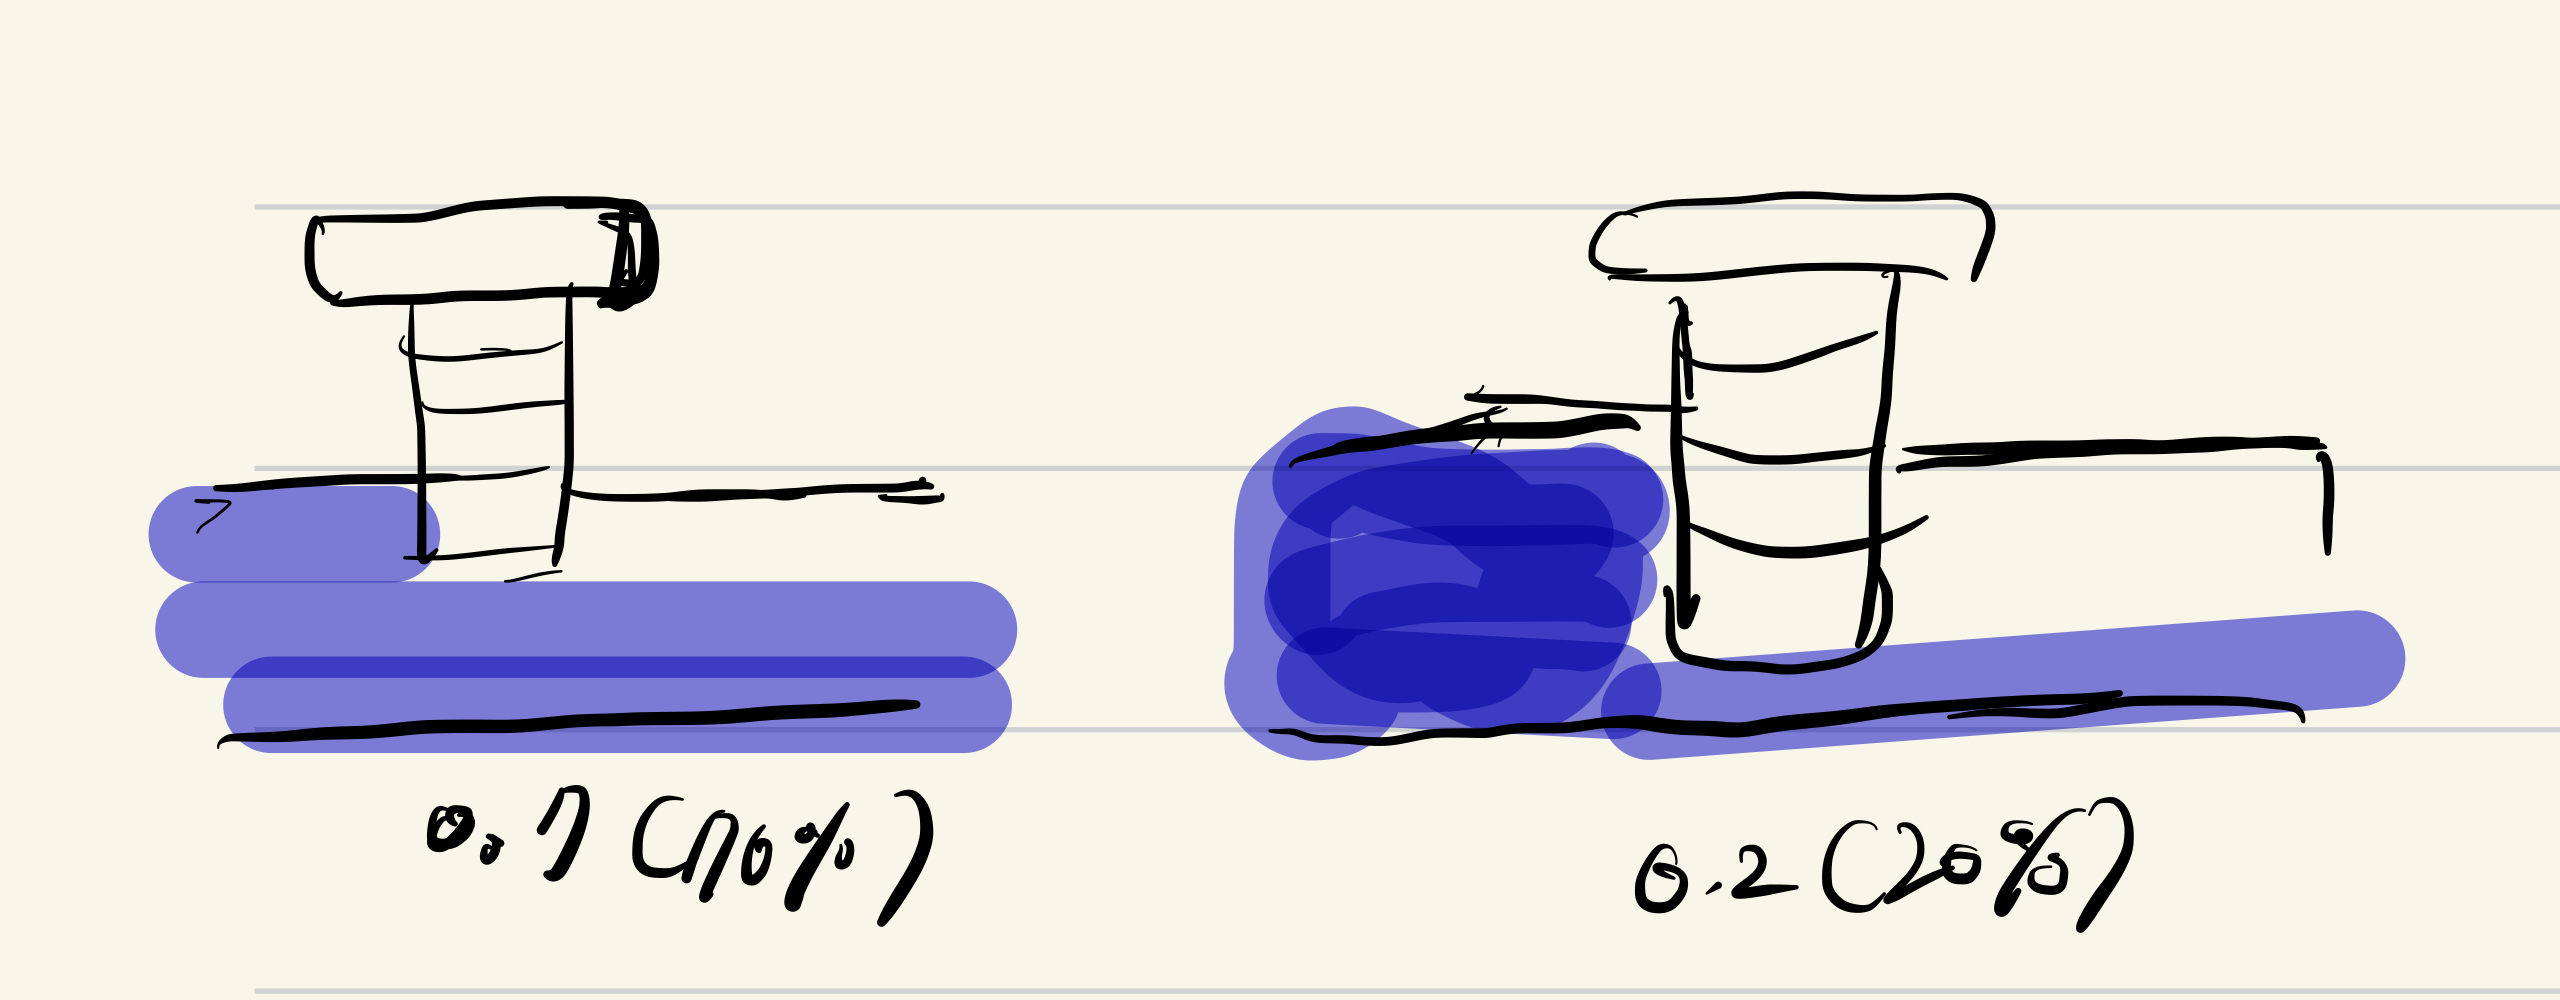 0.7 (70%)
0.2 (20%)